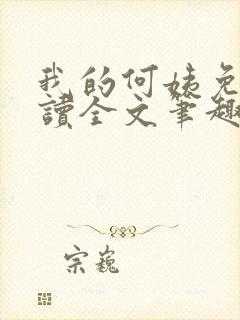 我的何姨免
讀全文筆趣
宗巍